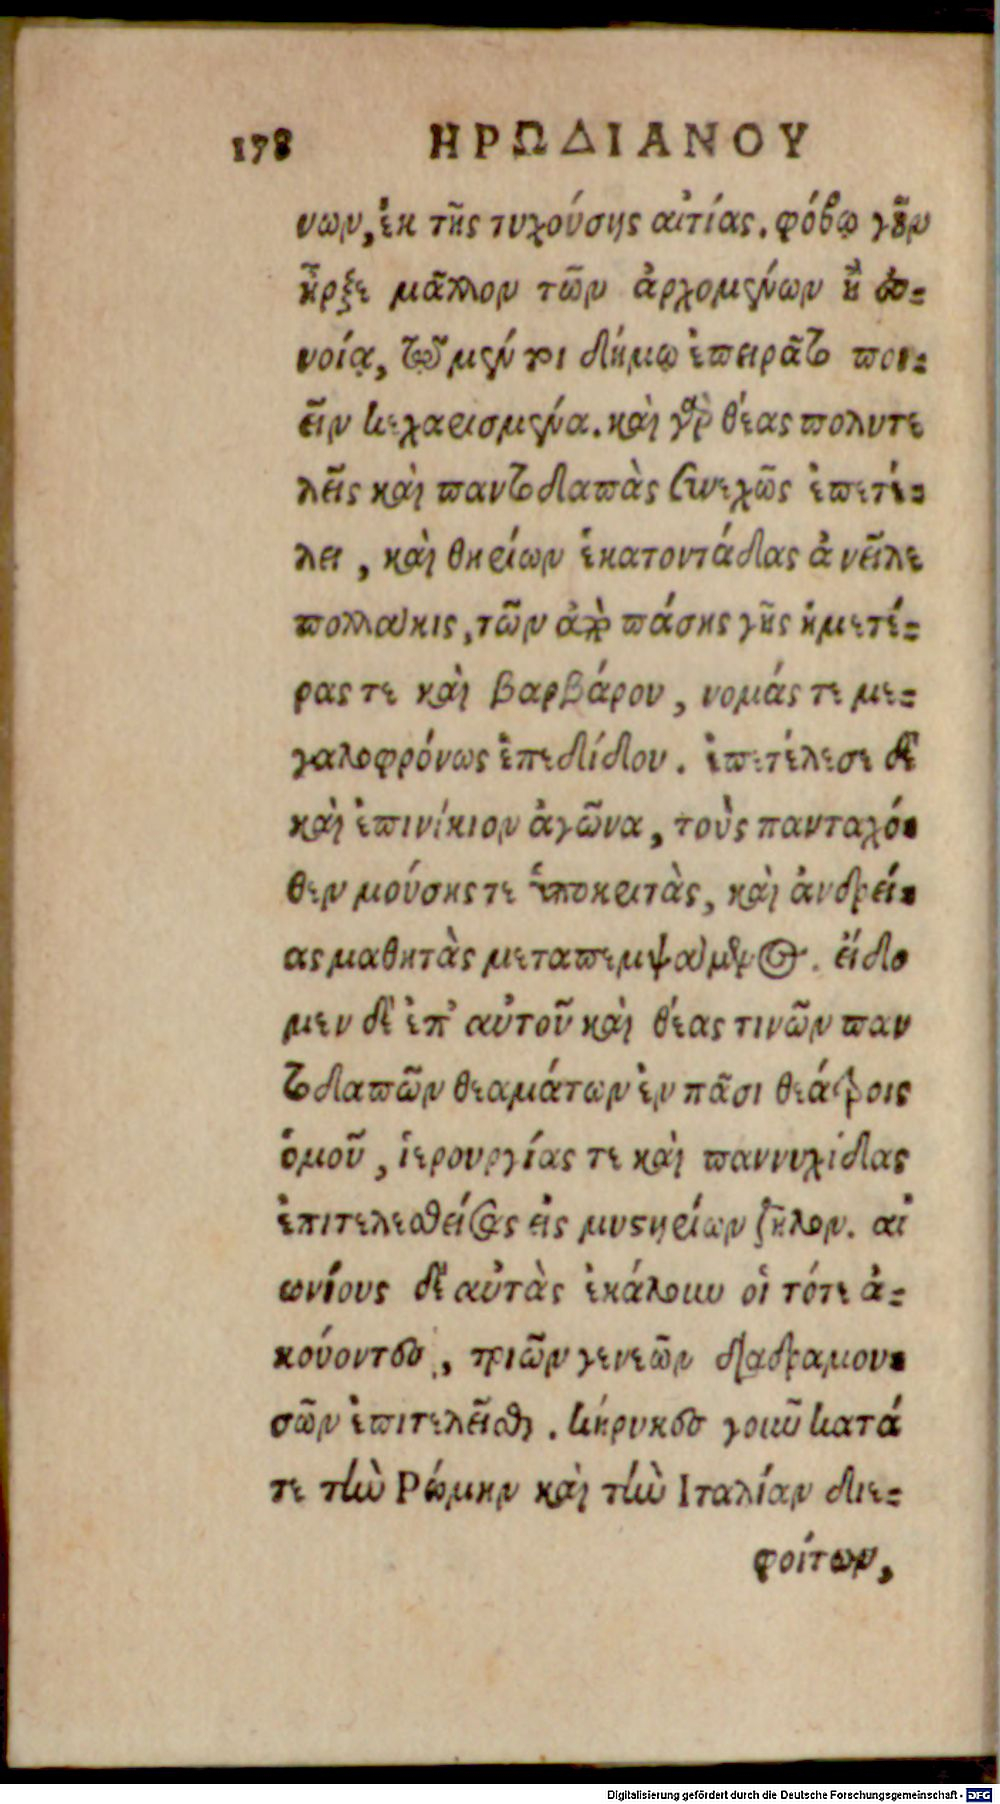 178 ΗΡΩΔΙΑΝΟΥ
νων, ἐκ τῆς τυχούσης αἰτίας. φόβῳ γοῦν
ἦρξε μᾶλλον τῶν ἀρχομένων ἢ εὐ-
νοίᾳ, τῷ μέν τοι δήμῳ ἐπειρᾶτο ποι-
εῖν κεχαρισμένα. καὶ γὰρ θέας πολυτε
λεῖς καὶ παντοδαπὰς συνεχῶς ἐπετέ-
λει, καὶ θηρίων ἑκατοντάδας ἀνεῖλε
πολλάκις, τῶν ἀπὸ πάσης γῆς ἡμετέ-
ρας τε καὶ βαρβάρου, νομάς τε με-
γαλοφρόνως ἐπεδίδου. ἐπετέλεσε δὲ
καὶ ἐπινίκιον ἀγῶνα, τοὺς πανταχό-
θεν μούσης τε ὑποκριτὰς, καὶ ἀνδρεί-
ας μαθητὰς μεταπεμψάμενος. εἴδο
μεν δὲ ἐπ' αὐτοῦ καὶ θέας τινῶν παν
τοδαπῶν θεαμάτων ἐν πᾶσι θεάτροις
ὁμοῦ, ἱερουργίας τε καὶ παννυχίδας
ἐπιτελεσθείσας εἰς μυστηρίων ζῆλον. αἰ
ωνίους δὲ αὐτὰς ἐκάλουν οἱ τότε ἀ-
κούοντες, τριῶν γενεῶν διαδραμου-
σῶν ἐπιτελεῖσθαι. κήρυκες γοῦν κατά
τε τὴν Ρώμην καὶ τὴν Ιταλίαν διε-
φοίτων,
Digitalisierung gefördert durch die Deutsche Forschungsgemeinschaft - DFG